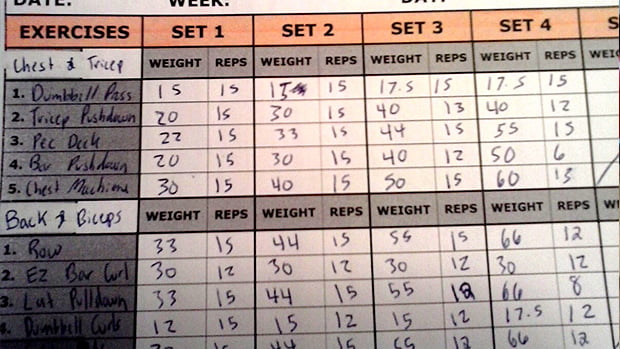 DATE: WEEK: DAY:
EXERCISES SET 1 SET 2 SET 3 SET 4 S
Chest & Tricep WEIGHT REPS WEIGHT REPS WEIGHT REPS WEIGHT REPS WEIG
1. Dumbbell Pass 15 15 15 15 17.5 15 17.5 15
2. Tricep Pushdown 20 15 30 15 40 13 40 12
3. Pec Deck 22 15 33 15 44 15 55 15
4. Bar Pushdown 20 15 30 15 40 12 50 6
5. Chest Machine 30 15 40 15 50 15 60 13
Back & Biceps WEIGHT REPS WEIGHT REPS WEIGHT REPS WEIGHT REPS WE
1. Row 33 15 44 15 55 15 66 12
2. EZ Bar Curl 30 12 30 12 30 12 30 12
3. Lat Pulldown 33 15 44 15 55 12 66 8
4. Dumbbell Curls 12 15 15 12 15 12 17.5 12
44 15 12 66 12